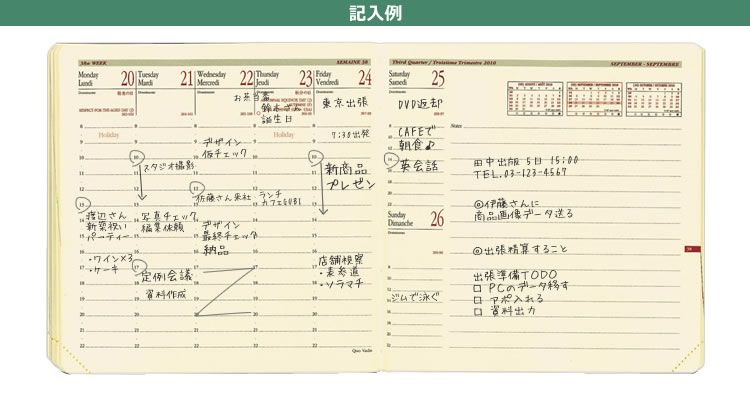 記入例
38e WEEK
SEMAINE 38
Monday
Lundi
20
Tuesday
Mardi
21
Wednesday
Mercredi
22
Thursday
Jeudi
23
Friday
Vendredi
24
Dominante
敬老の日
秋分の日
RESPECT-FOR-THE-AGED DAY (J)
Holiday
お弁当
誕生日
Holiday
東京出張
7:30出発
デザイン
仮チェック
スタジオ撮影
新商品
プレゼン
佐藤さん来社
ランチ
渡辺さん
新築祝い
パーティー
・ワイン×3
・ケーキ
写真チェック
編集依頼
デザイン
最終チェック
納品
定例会議
資料作成
店舗視察
・表参道
・ソラマチ
8
9
10
11
12
13
14
15
16
17
18
19
20
21
22
Quo Vadis
Third Quarter / Troisième Trimestre 2010
SEPTEMBER - SEPTEMBRE
Saturday
Samedi
25
DVD返却
CAFEで
朝食♪
英会話
Sunday
Dimanche
26
ジムで泳ぐ
Notes
田中出版 5日 15:00
TEL.03-123-4567
@伊藤さんに
商品画像データ送る
@出張精算すること
出張準備TODO
□ PCのデータ移す
□ アポ入れる
□ 資料出力
38